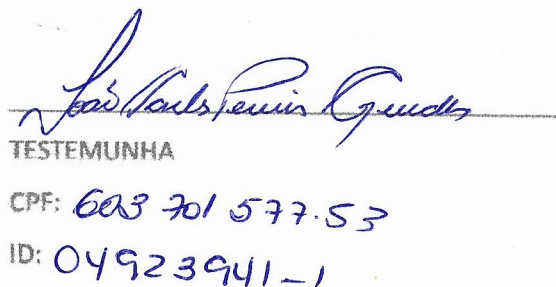 João Carlos Pereira Guedes
TESTEMUNHA
CPF: 603 701 577.53
ID: 04923941-1